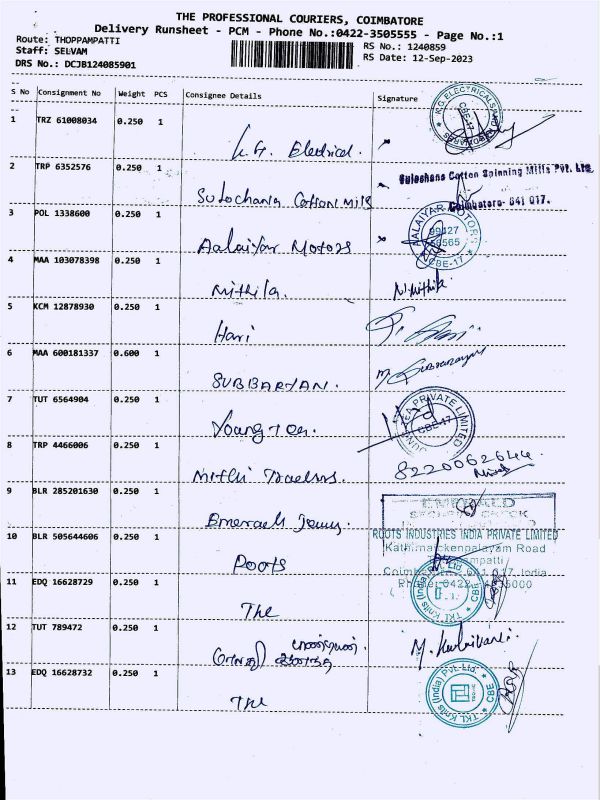 THE PROFESSIONAL COURIERS, COIMBATORE
Delivery Runsheet - PCM - Phone No.:0422-3505555 - Page No.:1
Route: THOPPAMPATTI
Staff: SELVAM
DRS No.: DCJB124085901
RS No.: 1240859
RS Date: 12-Sep-2023
S No Consignment No Weight PCS Consignee Details Signature
1 TRZ 61008034 0.250 1
K.G. Electrical.
K.G. ELECTRICALS
CBE-17
2 TRP 6352576 0.250 1
Sulochana Cotton Mills
Sulochana Cotton Spinning Mills Pvt. Ltd.
Coimbatore- 641 017.
3 POL 1338600 0.250 1
Aalaiyar Motors
AALAIYAR MOTORS
CBE-17
4 MAA 103078398 0.250 1
Mithila.
N.Mithila
5 KCM 12878930 0.250 1
Hari
6 MAA 600181337 0.600 1
SUBBARYAN.
7 TUT 6564904 0.250 1
Young Tea.
TEA PRIVATE LIMITED
CBE-17
8 TRP 4466006 0.250 1
Mithi Traders.
8220062644
9 BLR 285201630 0.250 1
EMERALD
10 BLR 505644606 0.250 1
Roots
ROOTS INDUSTRIES INDIA PRIVATE LIMITED
Kathirnaickenpalayam Road
11 EDQ 16628729 0.250 1
TKL
TKL Knits (India) Pvt. Ltd. CBE
12 TUT 789472 0.250 1
13 EDQ 16628732 0.250 1
TKL
TKL Knits (India) Pvt. Ltd. CBE